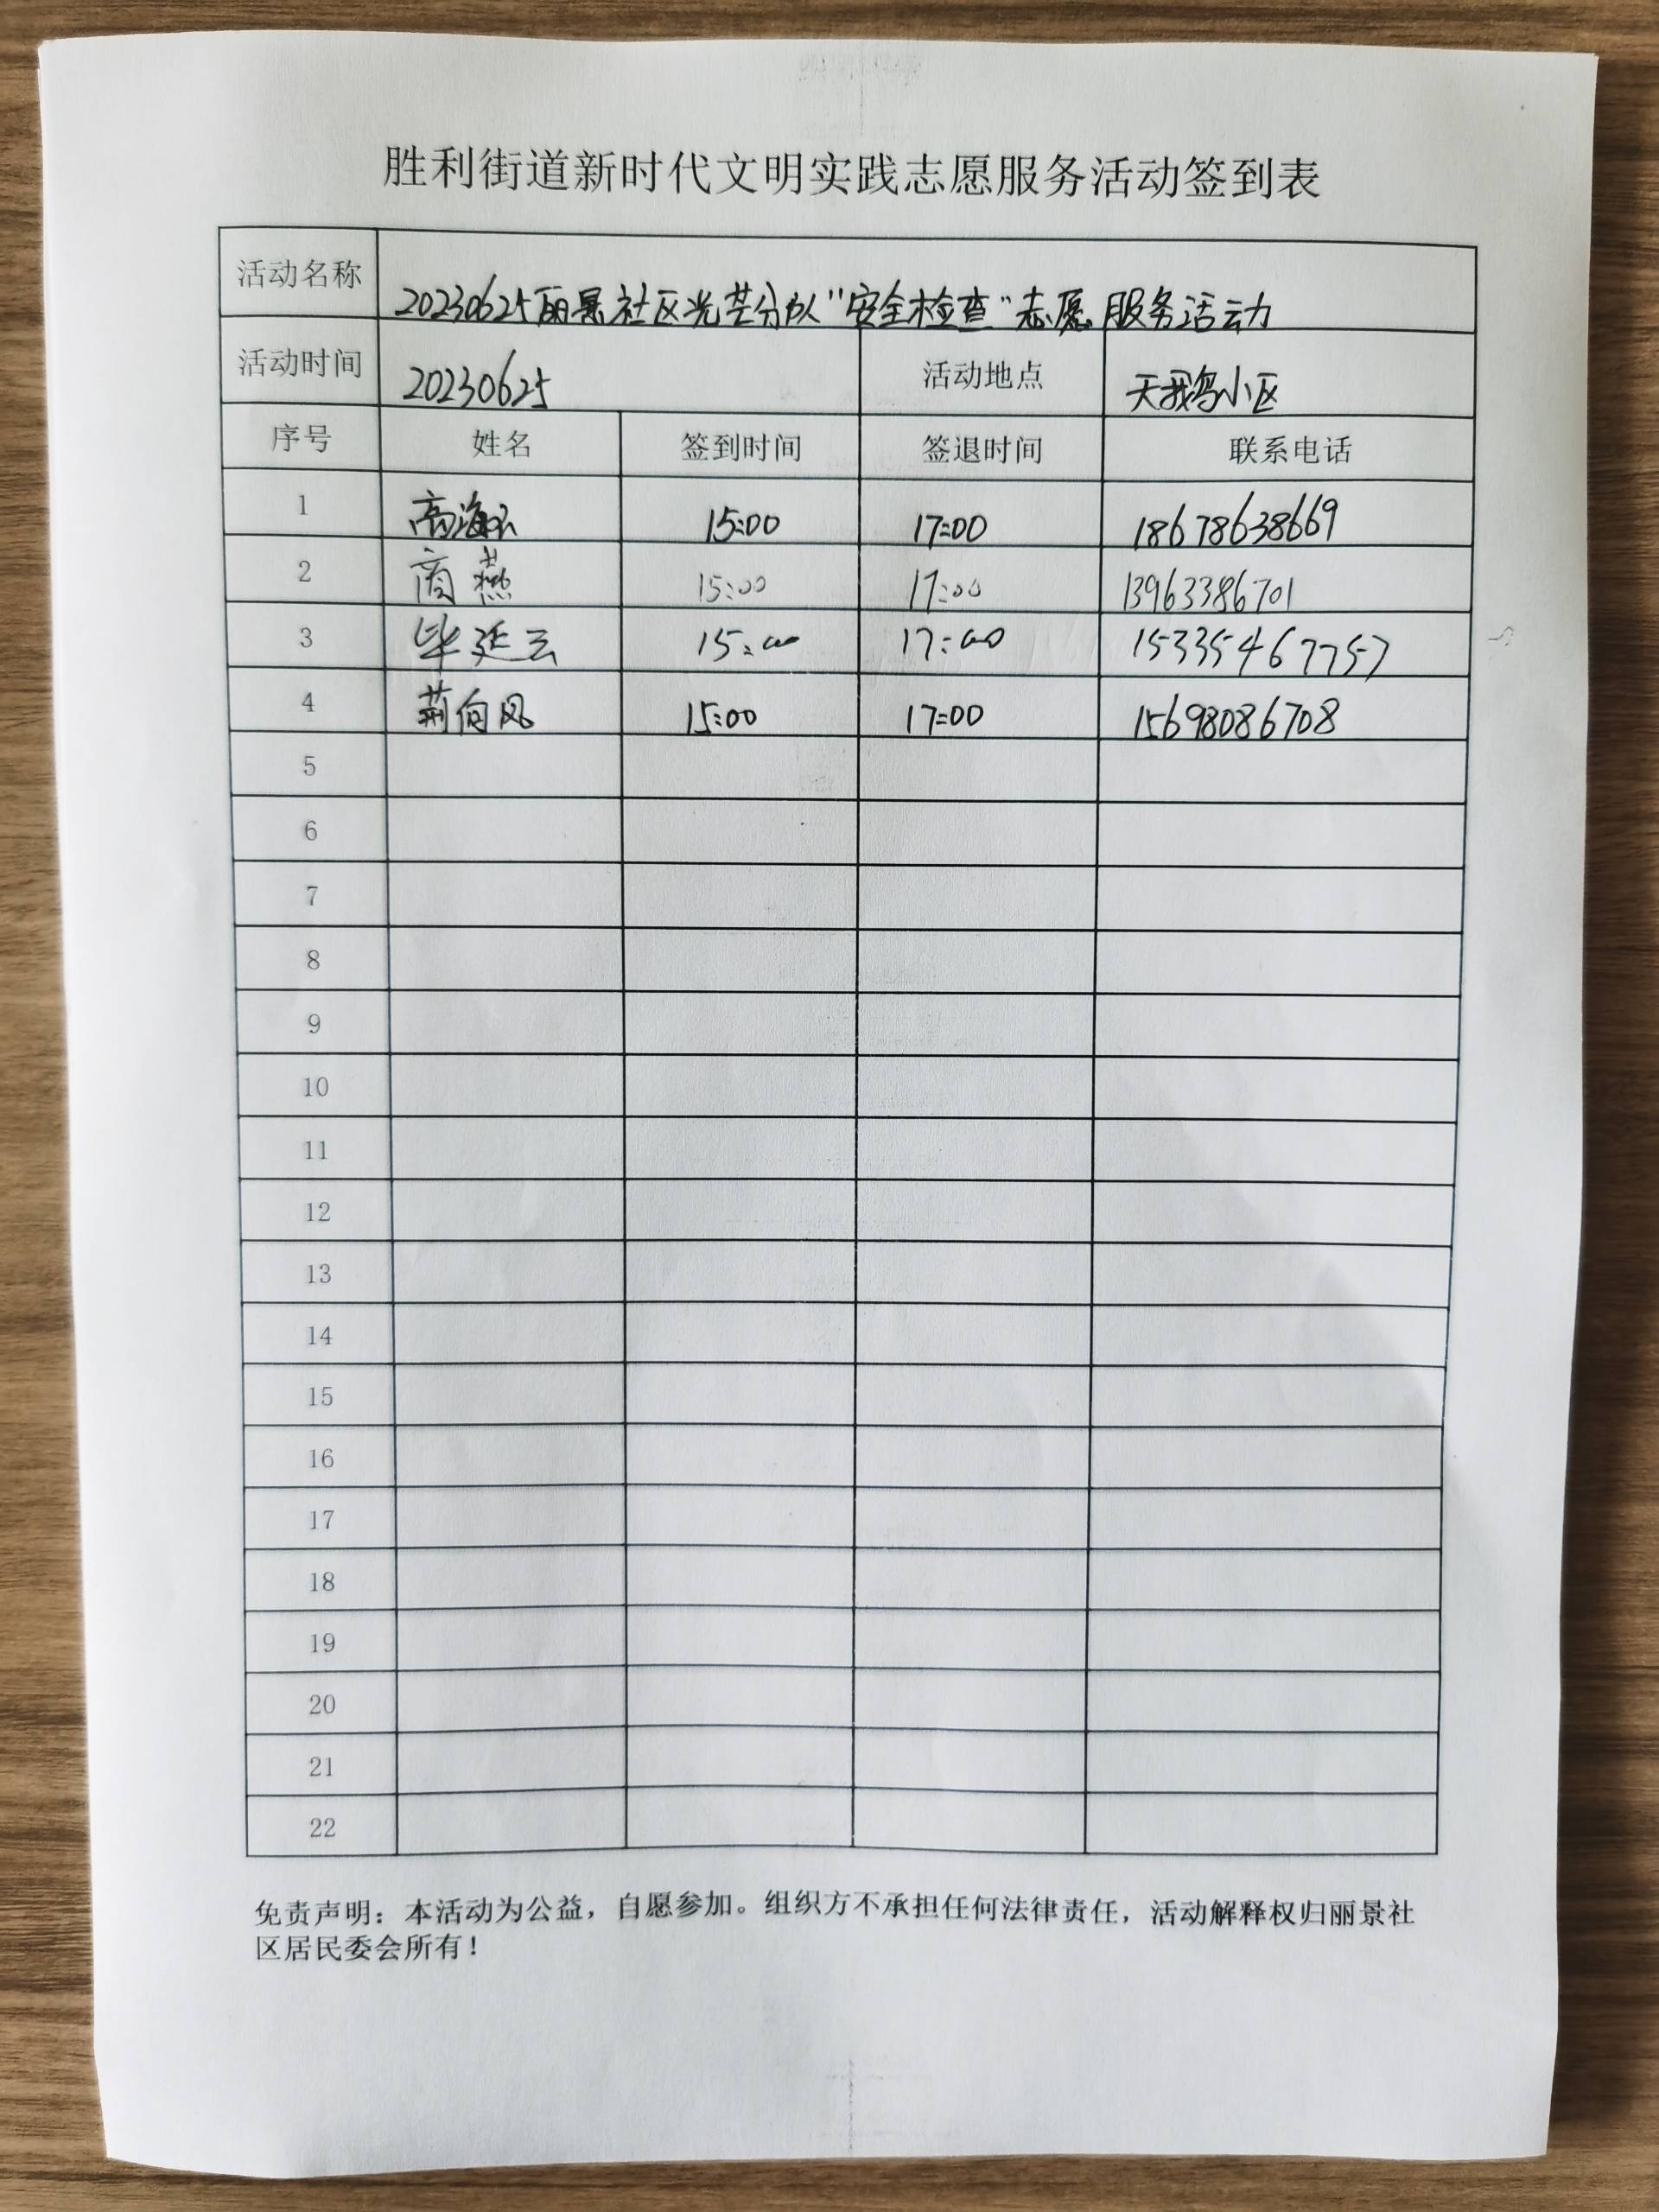 胜利街道新时代文明实践志愿服务活动签到表
活动名称 20230625丽景社区光芒分队"安全检查"志愿服务活动
活动时间 20230625 活动地点 天鹅小区
序号 姓名 签到时间 签退时间 联系电话
1 高海 15:00 17:00 18678638669
2 商燕 15:00 17:00 13963386701
3 毕延云 15:00 17:00 15335467757
4 荆向风 15:00 17:00 15698086708
5
6
7
8
9
10
11
12
13
14
15
16
17
18
19
20
21
22
免责声明：本活动为公益，自愿参加。组织方不承担任何法律责任，活动解释权归丽景社
区居民委会所有！